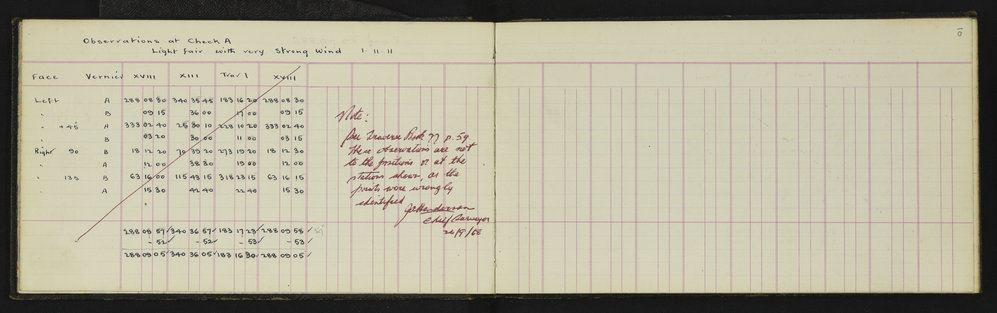 Observations at Check A
Light fair with very strong wind 1.11.11
10
Face Vernier XVIII XIII Trav 1 XVIII
Left A 288 08 30 340 35 45 183 16 20 288 08 30
" B 09 15 36 00 17 00 09 15
" +45 A 333 02 40 25 30 10 228 10 20 333 02 40
" B 03 20 30 00 11 00 03 15
Right 90 B 18 12 20 70 39 20 273 19 20 18 12 30
" A 12 00 38 30 19 00 12 00
" 135 B 63 16 00 115 43 15 318 23 15 63 16 15
" A 15 30 42 40 22 40 15 30
288 08 57 340 36 57 183 17 23 288 09 58
- 52 - 52 - 53 - 53
288 09 05 340 36 05 183 16 30 288 09 05
Note:
Per Traverse Book 77 p. 59
These observations are not
to the positions or at the
stations shown, as the
points were wrongly
identified
Henderson
Chief Surveyor
26/9/68